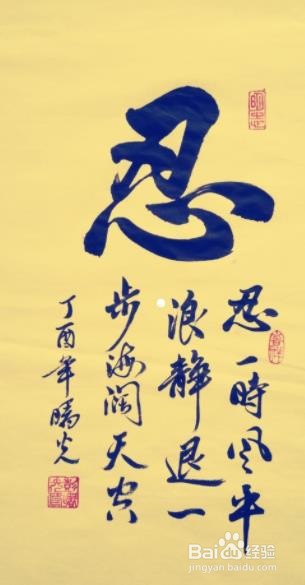 忍
忍一時風平
浪靜退一
步海阔天空
丁酉年曉光
Baidu经验
jingyan.baidu.com